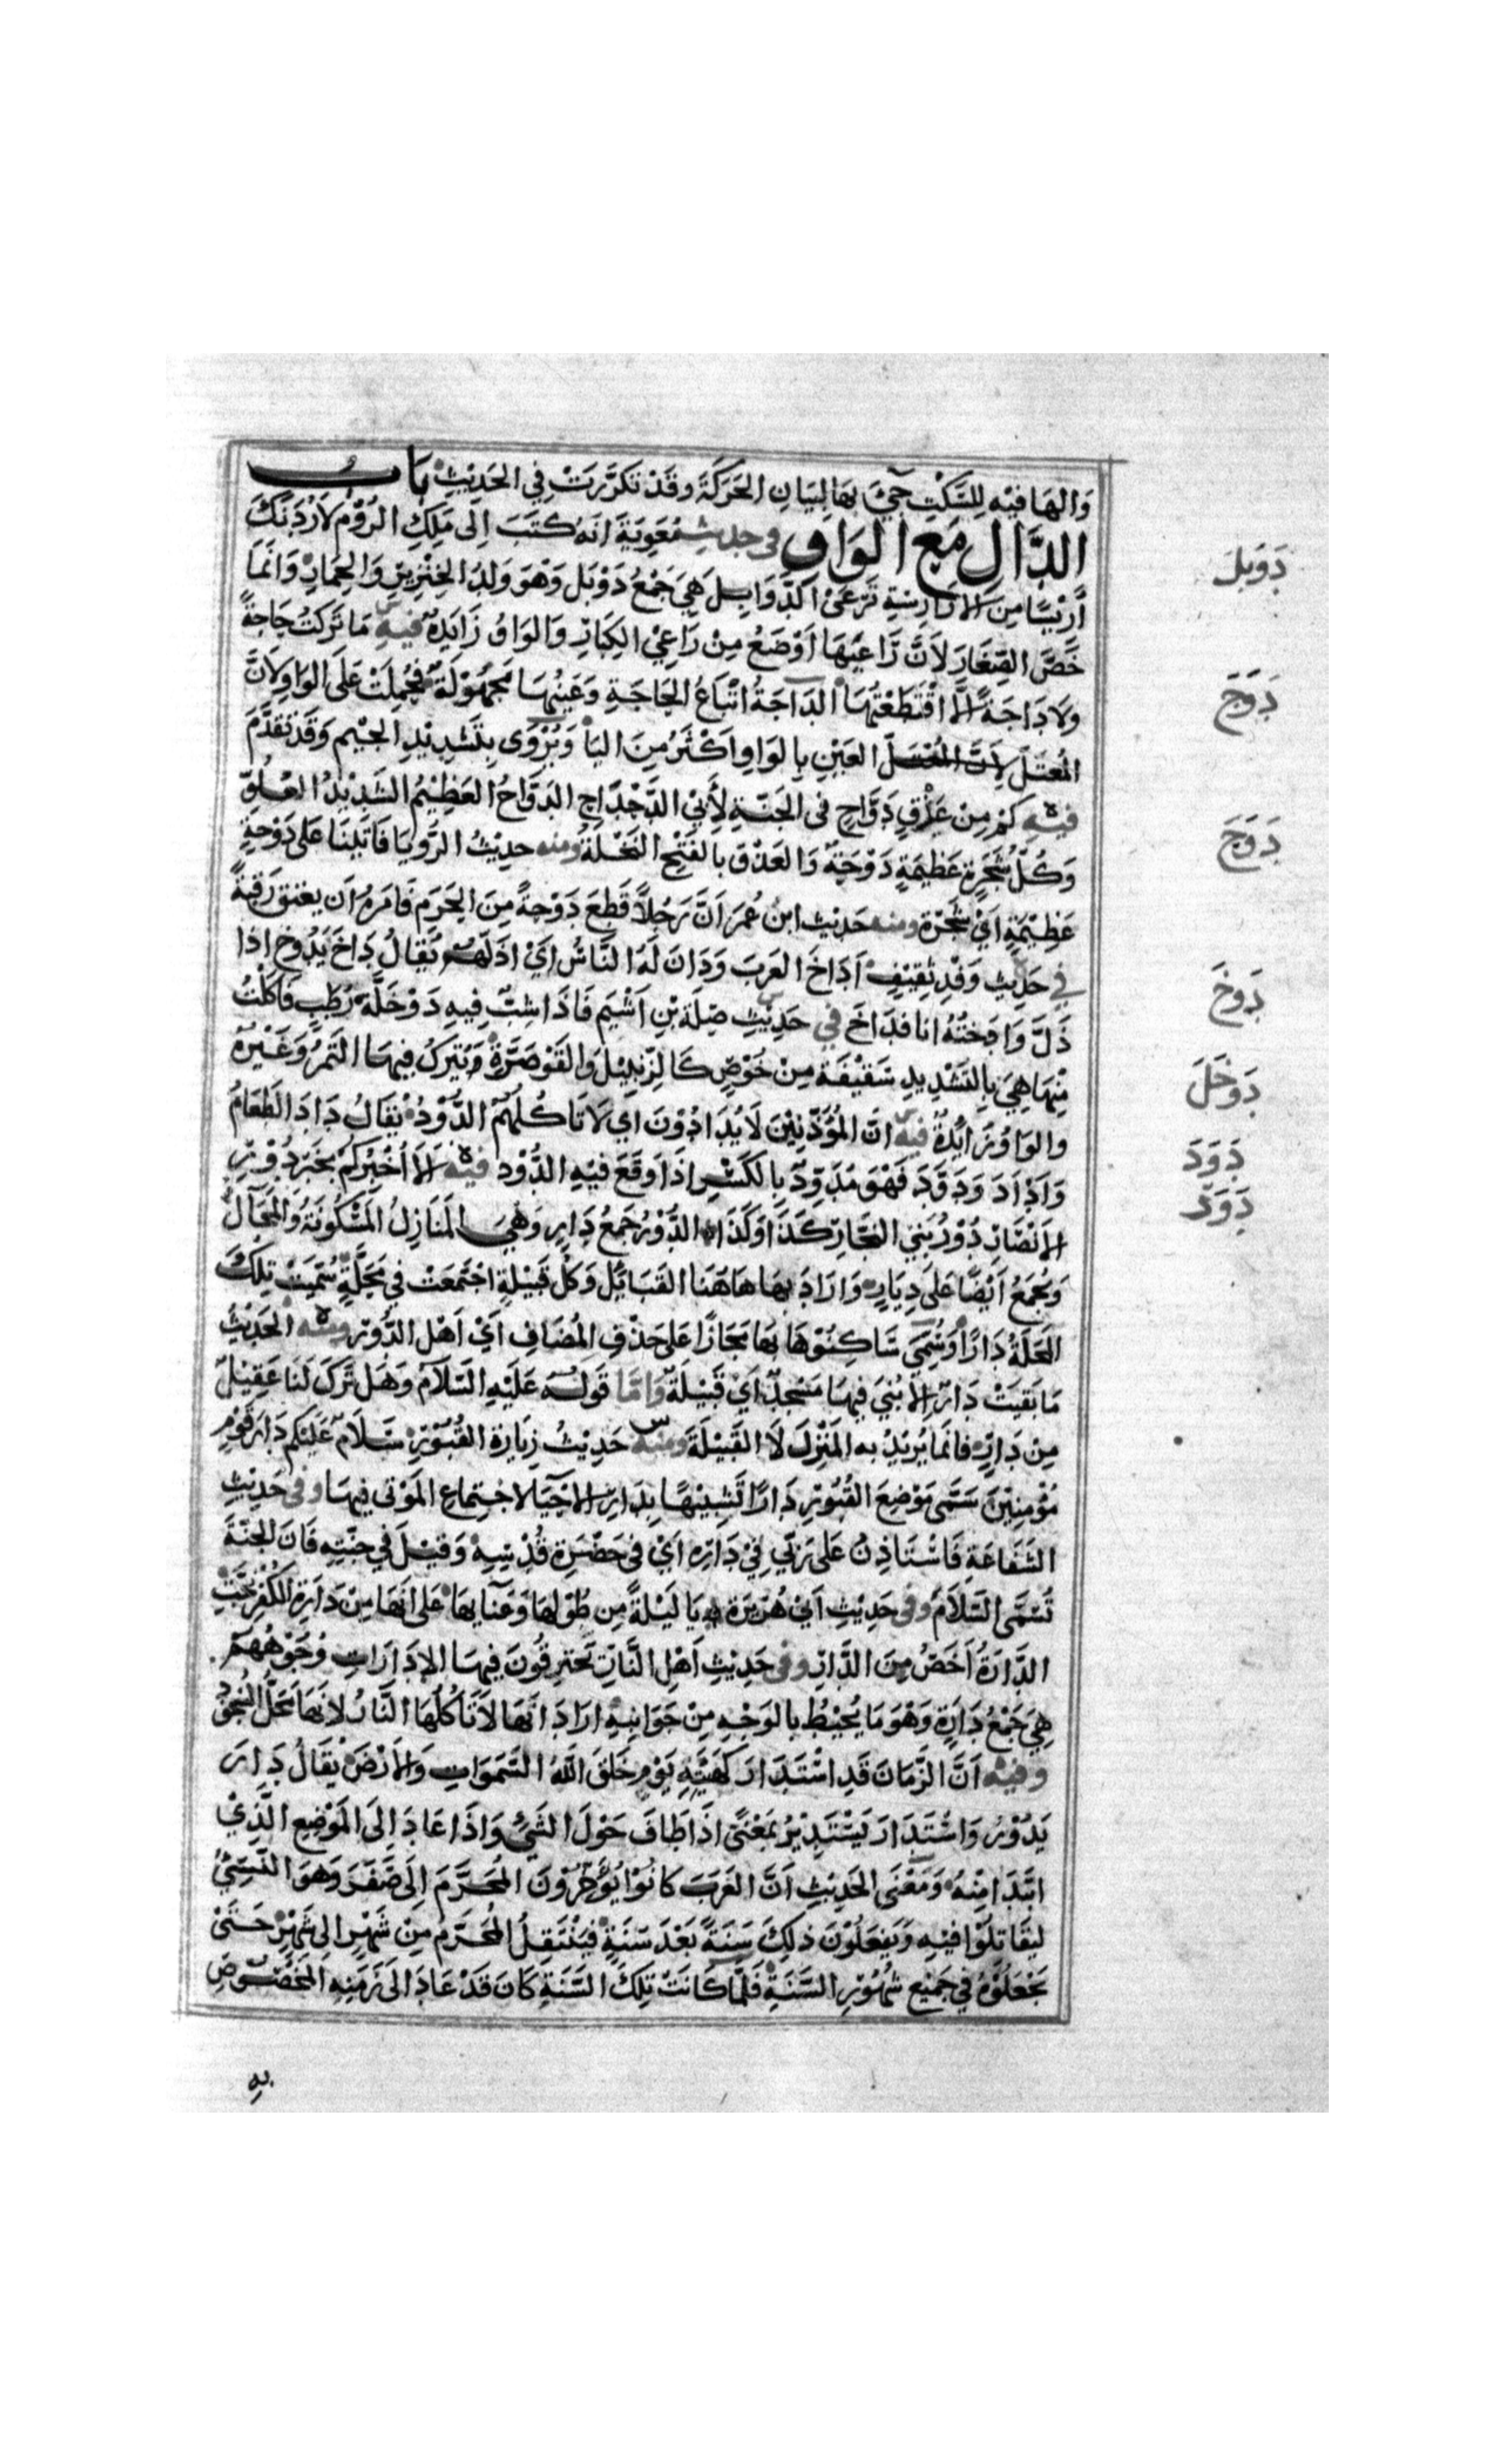 وَالهَا فيْه لِلسَّكْتِ جِيَْ بهَا لِبَيَانِ الحَرَكَةَ وَقَدْ تَكَرَّرَتْ فِي الحَدِيْثِ بَابُ
الدَّالِ مَعَ الوَاوِ فى حديثِ مُعَوِيَةَ انَهُ كَتَبَ اِلَى مَلِكِ الرُوْمِ لَارُدَّنَكَ
دَوبلَ
اَرِيْسًا مِنَ الارَارِسَةِ تَرْعَىْ الدَّوَابِلَ هِيَ جَمْعُ دَوْبَل وَهْوَ وَلدُ الخِنْزِيْرِ وَالحِمَارِ وَانَمَا
خَصَّ الصِّغَارَ لاَنَّ رَاعِيَهَا اَوْضَعُ مِنْ رَاعِيْ الكِبَارِ وَالوَاوُ زَايَدةٌ فيْهِ مَا تَرَكتُ حَاجَةً
دَوَجَ
وَلَا دَاجَةً اِلَّا اقْتَطَعْتُهَا الدَاجَةُ اتْبَاعُ الحَاجَةِ وَعَيْنُهَا مَجهُوْلَةٌ فحُمِلَتْ عَلَى الوَاوِ لاَنَّ
المُعتَلَّ لاِنَّ المُعْتَلَّ العَيْنِ بِالوَاوِ اَكْثَرُ مِنَ اليَا وَيُرْوَى بِتَشْدِيْدِ الجِيْمِ وَقَدْ تَقدَّمَ
دَوَحَ
فيْهِ كمْ مِنْ عَذْقٍ دَوَّاحٍ فى الجَنّةِ لِأَبِيْ الدَّحْدَاحِ الدَوَّاحُ العَظِيْمُ الشَدِيْدُ العُلُوِّ
وَكُلُّ شَجَرةٍ عَظِيْمَةٍ دَوْحَةٌ وَالعَذْق بالفَتْحِ النَخْلَةُ ومنه حدِيْثُ الرُّويَا فَاتَيْنَا عَلى دَوْحَةٍ
عَظِيْمَةٍ اَيْ شَجَرَة ومنه حَدِيْث ابن عُمَرَ اَنَّ رَجُلاً قَطَعَ دَوْحةً مِنَ الحَرَم فَامَرهُ ان يعْتق رَقبَةً
دَوَخَ
فِي حَدِيْثِ وَفْدِ ثقِيْفٍ اَدَاخَ العَرَبَ وَدَانَ لَهُ النَّاسُ اَيْ اذَلَّهُمْ يُقَالُ دَاخَ يَدُوخ اذا
ذَلَّ وَادَختُهُ انا فدَاخَ في حَدِيْثِ صِلَةَ بْنِ اَشْيَم فَاذَا سِبٌّ فِيهِ دَوْخَلَّةُ رُطَبٍ فَاَكَلْتُ
دَوخَلَ
مِنْهَا هِيَ بِالتَشْدِيدِ سَقِيْفَةٌ مِنْ خَوْصٍ كَالزِّنبِيْل وَالقَوْصَرَّةِ وَيُتْرَكُ فِيهَا التَمرُ وَغَيْرهُ
والوَاوُ زَايدَةٌ فيهِ انَ المُؤَذّنِيْنَ لَا يُدَادُوْنَ اَي لَا تَاكُلُهُمْ الدُّوْدُ يُقَالُ دَادَ الطَعَامُ
دَوَدَ
وَاَدَادَ وَدَوَّدَ فَهْوَ مُدَوِّدٌ بِالكَسْرِ اذَا وَقَعَ فيْهِ الدُّوْد فيْه اَلَا اُخْبِرُكُمْ بخَيْرِ دُوْرِ
دَوَرَ
الاَنْصَارِ دُوْرُ بَنِي النجَّارِ كَذَا وَكَذَا الدُّوْرُ جَمعُ دَارٍ وَهْيَ المَنَازِلُ المَسْكُونَةُ وَالمَحَالُّ
وَيُجْمَعُ اَيْضًا عَلَى دِيَارٍ وَارَادَ بِهَا هَاهُنَا القَبَايِلَ وَكُلُّ قَبِيْلَةٍ اجْتَمَعَتْ فِي مَحَلَّةٍ سُمِّيَتْ تِلكَ
المَحَلةُ دَارًا وَسُمِّيَ سَاكِنُوْهَا بهَا مَجَازًا عَلى حَذْفِ المُضَافِ اَيْ اَهْل الدُّوْرِ ومِنْه الحَدِيْثُ
مَا بَقِيَتْ دَارٌ اِلاَ بُنِيَ فِيهَا مَسْجدٌ اَيْ قَبِيْلَةٌ وَامَّا قَوْلُهُ عَلَيْهِ السَلاَمُ وَهَل تَرَكَ لَنَا عَقِيْلٌ
مِن دَارٍ فانَمَا يُرِيْدُ به المَنْزِلَ لَا القَبِيْلَةَ ومِنْه حَدِيْثُ زِيَارةِ القُبُوْرِ سَلاَمٌ عَلَيْكم دَارَ قَوْمٍ
مُوْمِنِيْنَ سَمّى مَوْضِعَ القُبُوْرِ دَارًا تَشْبِيْهًا بِدَارِ الاحْيَآ لاجتِماعِ المَوْتى فِيهَا وفى حَدِيْثِ
الشَفَاعَةِ فَاسْتَاذِنُ عَلى رَبّي فِيْ دَارِه اَيْ فى حَضْرَةِ قُدْسِهِ وَقِيْلَ فِي جنّتِهِ فَانَ الجَنَّةَ
تُسَمَّى السَّلاَمِ وفى حَدِيْثِ اَبِيْ هُرَيْرَةَ يَا لَيْلَةً مِن طُوْلِهَا وَعَنَايهَا عَلى انَّهَا مِنْ دَارَةِ الكُفْرِ نَجَّتِ
الدَّارَةُ اَخَصُّ مِنَ الدَّارِ وفى حَدِيْثِ اَهْلِ النَّارِ تَحْتَرِقُونَ فِيهَا الاِ دَارَاتِ وُجُوْهُهِم
هِيَ جَمْعُ دَارَةٍ وَهْوَ مَا يُحِيْطُ بالوَجْهِ مِنْ جَوَانبِهِ ارَادَ انَّهَا لاَ تَاكُلُهَا النَّارُ لاِنهَا مَحَلُّ السُّجُوْدِ
وفيْه اَنَّ الزَّمَانَ قَدِ اسْتَدَارَ كَهَيْئَةِ يَوْم خَلَقَ اللّهُ السَّمَوَاتِ وَالاَرْضَ يُقَالُ دَارَ
يَدُوْرُ وَاسْتَدَارَ يَسْتَدِيْرُ بِمَعْنَى اذَا طَافَ حَوْلَ الشَيْءِ وَاذَا عَادَ اِلَى المَوْضِعِ الَّذِيْ
ابْتَدَا مِنْهُ وَمَعْنَى الحَدِيْثِ اَنَّ العَرَبَ كَانُوْا يُؤَخِّرُوْنَ المُحَرَّمَ اِلَى صَفَرَ وَهوَ النَّسِيُْ
ليقَاتلُوْا فيْهِ وَيَفعَلُوْنَ ذٰلِكَ سَنَةً بَعْدَ سَنَةٍ فيَنْتَقِلُ المُحَرَّمُ مِنْ شَهْرٍ اِلى شَهْرٍ حَتَىْ
يَجْعَلُوْهُ فِي جَمِيْعِ شُهُوْرِ السَّنَةِ فَلَمَّا كَانَتْ تِلكَ السَّنَةِ كَانَ قَدْ عَادَ الَى زَمَنِهِ المَخْصُوْصِ
به